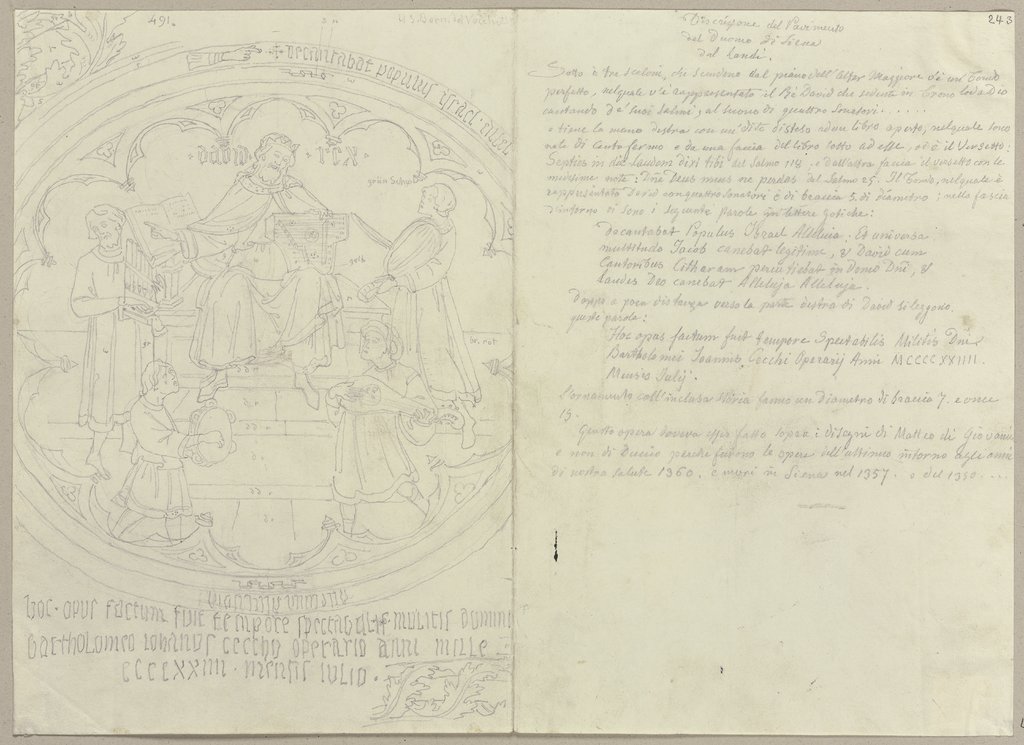 491.
243
+ decantabat populus israel allel
david · rex ·
grün
gelb
br. rot
gr
hoc · opus factum fuit tempore spectabilis militis domini
bartholomeo iohannis cecchi operario anni mille
cccc xx iiii · mensis iulio ·
Discrizione del Pavimento
del Duomo di Siena
del Landi.
Sotto è tre scaloni, che scendono dal piano dell'Altar Maggiore v'è un Tondo
perfetto, nel quale v'è rappresentato il Rè David che sedente in Trono loda Dio
cantando de' suoi Salmi, al suono di quattro Sonatori....
e tiene la mano destra con un dito disteso ad un libro aperto, nel quale sono
note di Canto fermo e da una faccia del libro sotto ad esse, vi è il Versetto:
Septies in die laudem dixi tibi del Salmo 118. e dall'altra faccia il versetto con le
medesime note: Deus meus ne perdas del Salmo 25. Il Tondo, nel quale è
rappresentato David con quattro Sonatori è di braccia 5. di diametro; nella fascia
d'intorno vi sono i seguenti parole in lettere gotiche:
Decantabat Populus Israel Alleluia. Et universa
multitudo Jacob canebat legitime, & David cum
Cantoribus Citharam percutiebat in Domo Dni, &
laudes Deo canebat Alleluja Alleluja.
Doppo a poca distanza verso la parte destra di David si leggono
queste parole:
Hoc opus factum fuit tempore Spectabilis Militis Dni
Bartholomei Joannis Cecchi Operarij Anni MCCCCXXIIII.
Mensis Julij.
L'ornamento coll'inclusa Storia fanno un Diametro di braccia 7. e once
15.
Questa opera doveva esser fatta sopra i disegni di Matteo di Giovanni
e non di Duccio perche furono le opere dell'ultimo intorno agli anni
di nostra salute 1360. e morì in Siena nel 1357. o del 1350....